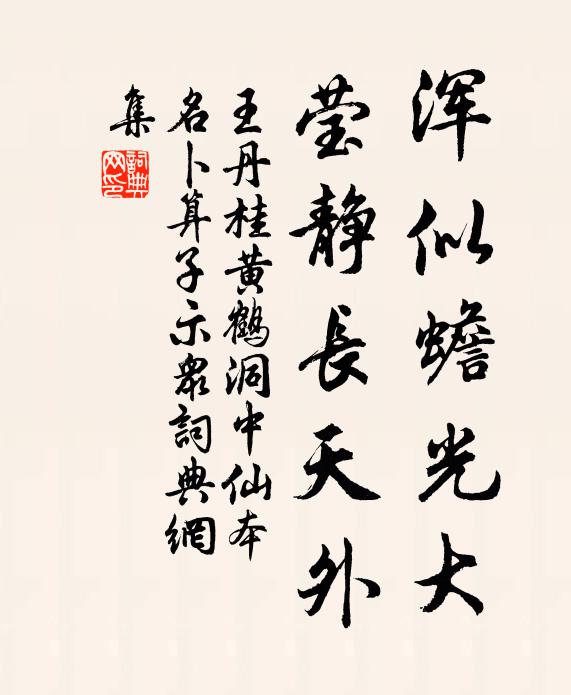 浑似蟾光大
莹静長天外
王丹桂黄鶴洞中仙本
名卜算子示衆詞典網
集
詞典网印